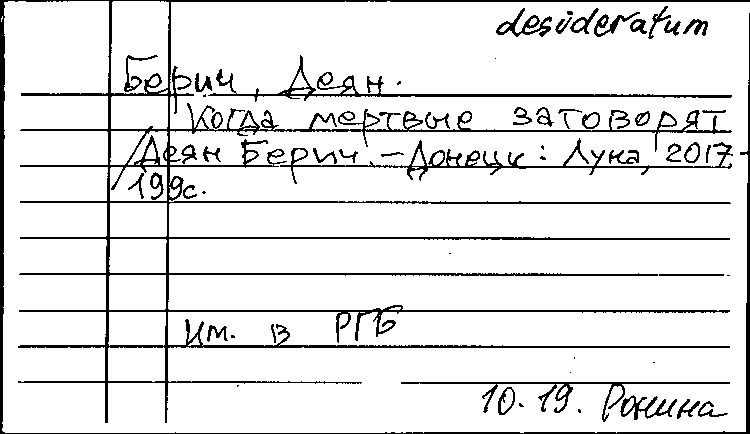 desideratum
Берич, Деян.
Когда мертвые заговорят
/Деян Берич. – Донецк: Луна, 2017.-
199с.
Им. в РГБ
10.19. Ронина